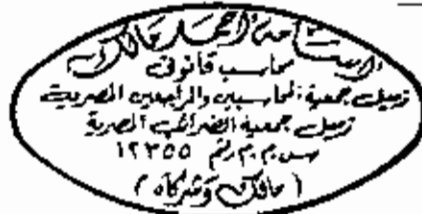 أحمد مالك
محاسب قانونى
زميل جمعية المحاسبين والمراجعين المصرية
زميل جمعية الضرائب المصرية
س.م.م رقم ١٢٣٥٥
( مالك وشركاه )